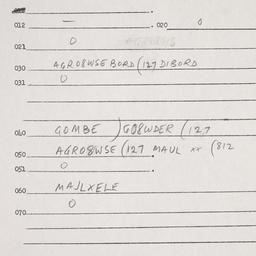 012 — . 020 0
021 0
030 AGRO8WSE BORD (127 DIBORD
031 0
040 GOMBE )GO8WDER (127
050 AGRO8WSE (127 MAUL xx (812
051 0
060 MAJLXELE
0
070